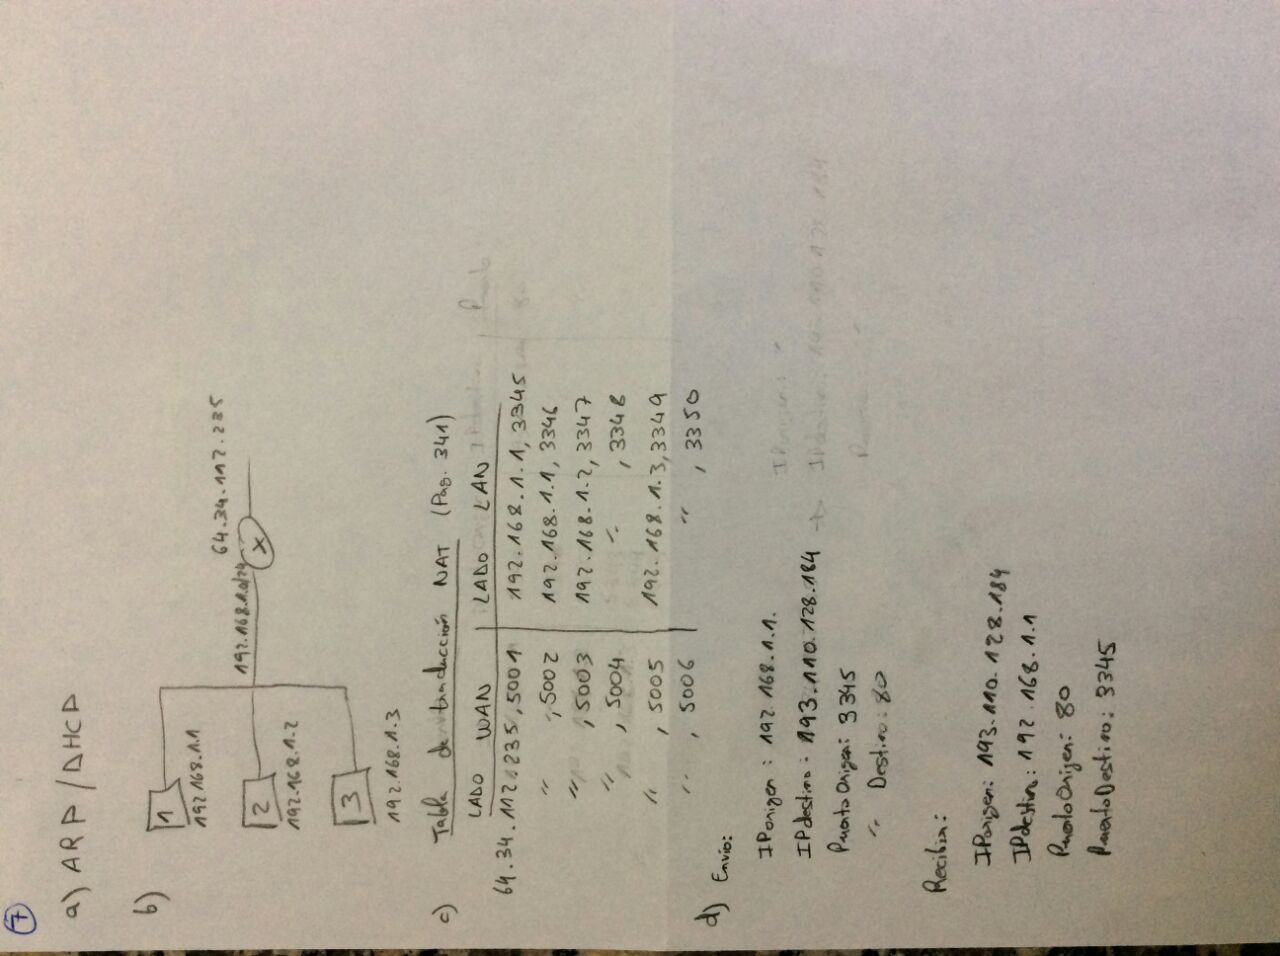 7
a) ARP / DHCP
b)
64.34.112.235
192.168.1.0/24
X
1
192.168.1.1
2
192.168.1.2
3
192.168.1.3
c) Tabla de traducción NAT (Pag. 341)
LADO WAN LADO LAN
64.34.112.235, 5001 192.168.1.1, 3345
" , 5002 192.168.1.1, 3346
" , 5003 192.168.1.2, 3347
" , 5004 " , 3348
" , 5005 192.168.1.3, 3349
" , 5006 " , 3350
d) Envio:
IPorigen: 192.168.1.1.
IPdestino: 193.110.128.184
PuertoOrigen: 3345
" Destino: 80
Recibir:
IPorigen: 193.110.128.184
IPdestino: 192.168.1.1
PuertoOrigen: 80
PuertoDestino: 3345